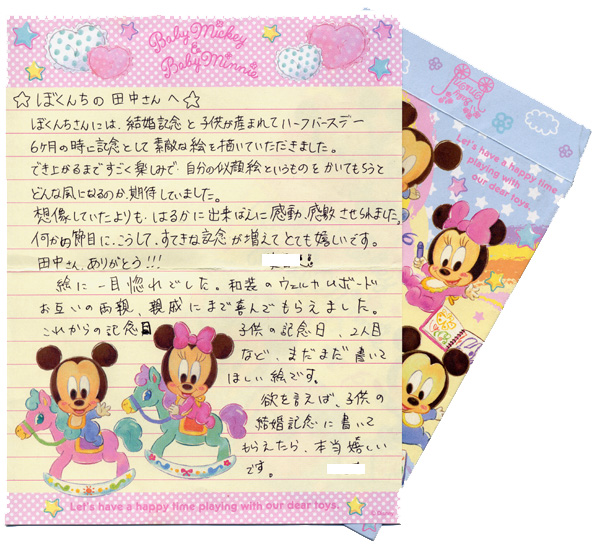 Baby Mickey
&
Baby Minnie
☆ぼくんちの 田中さんへ☆
ぼくんちさんには、結婚記念と子供が産まれてハーフバースデー
6ヶ月の時に記念として素敵な絵を描いていただきました。
でき上がるまですごく楽しみで、自分の似顔絵というものをかいてもらうと
どんな風になるのか、期待していました。
想像していたよりも、はるかに出来ばえに感動、感激させられました。
何かの節目に、こうして、すてきな記念が増えてとても嬉しいです。
田中さん、ありがとう!!!
絵に一目惚れでした。和装のウェルカムボード
お互いの両親、親戚にまで喜んでもらえました。
これからの記念日 子供の記念日、2人目
など、まだまだ書いて
ほしい絵です。
欲を言えば、子供の
結婚記念に書いて
もらえたら、本当嬉しい
です。
Let's have a happy time playing with our dear toys.
© Disney
Let's have a happy time
playing with
our dear toys.